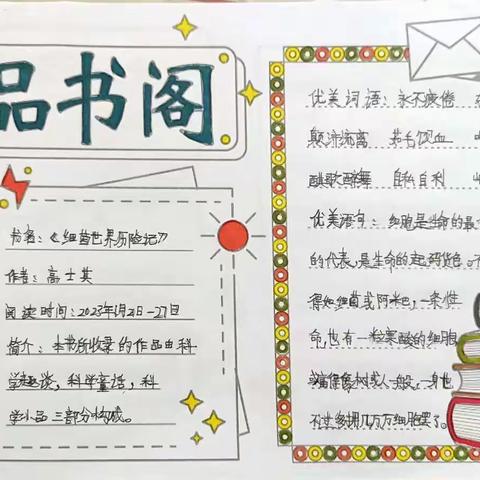 品书阁
书名：《细菌世界历险记》
作者：高士其
阅读时间：2023年1月21日-27日
简介：本书所收录的作品由科
学趣谈，科学童话，科
学小品三部分构成。
优美词语：永不疲倦
颠沛流离 茹毛饮血
酣歌醉舞 自私自利
优美语句：细胞是生命的最
的代表，是生命的起码货色。
得如细菌或阿米巴，一条性
命，也有一粒寒酸的细胞
或 一般，一身也
不过多拥几万万细胞罢了。